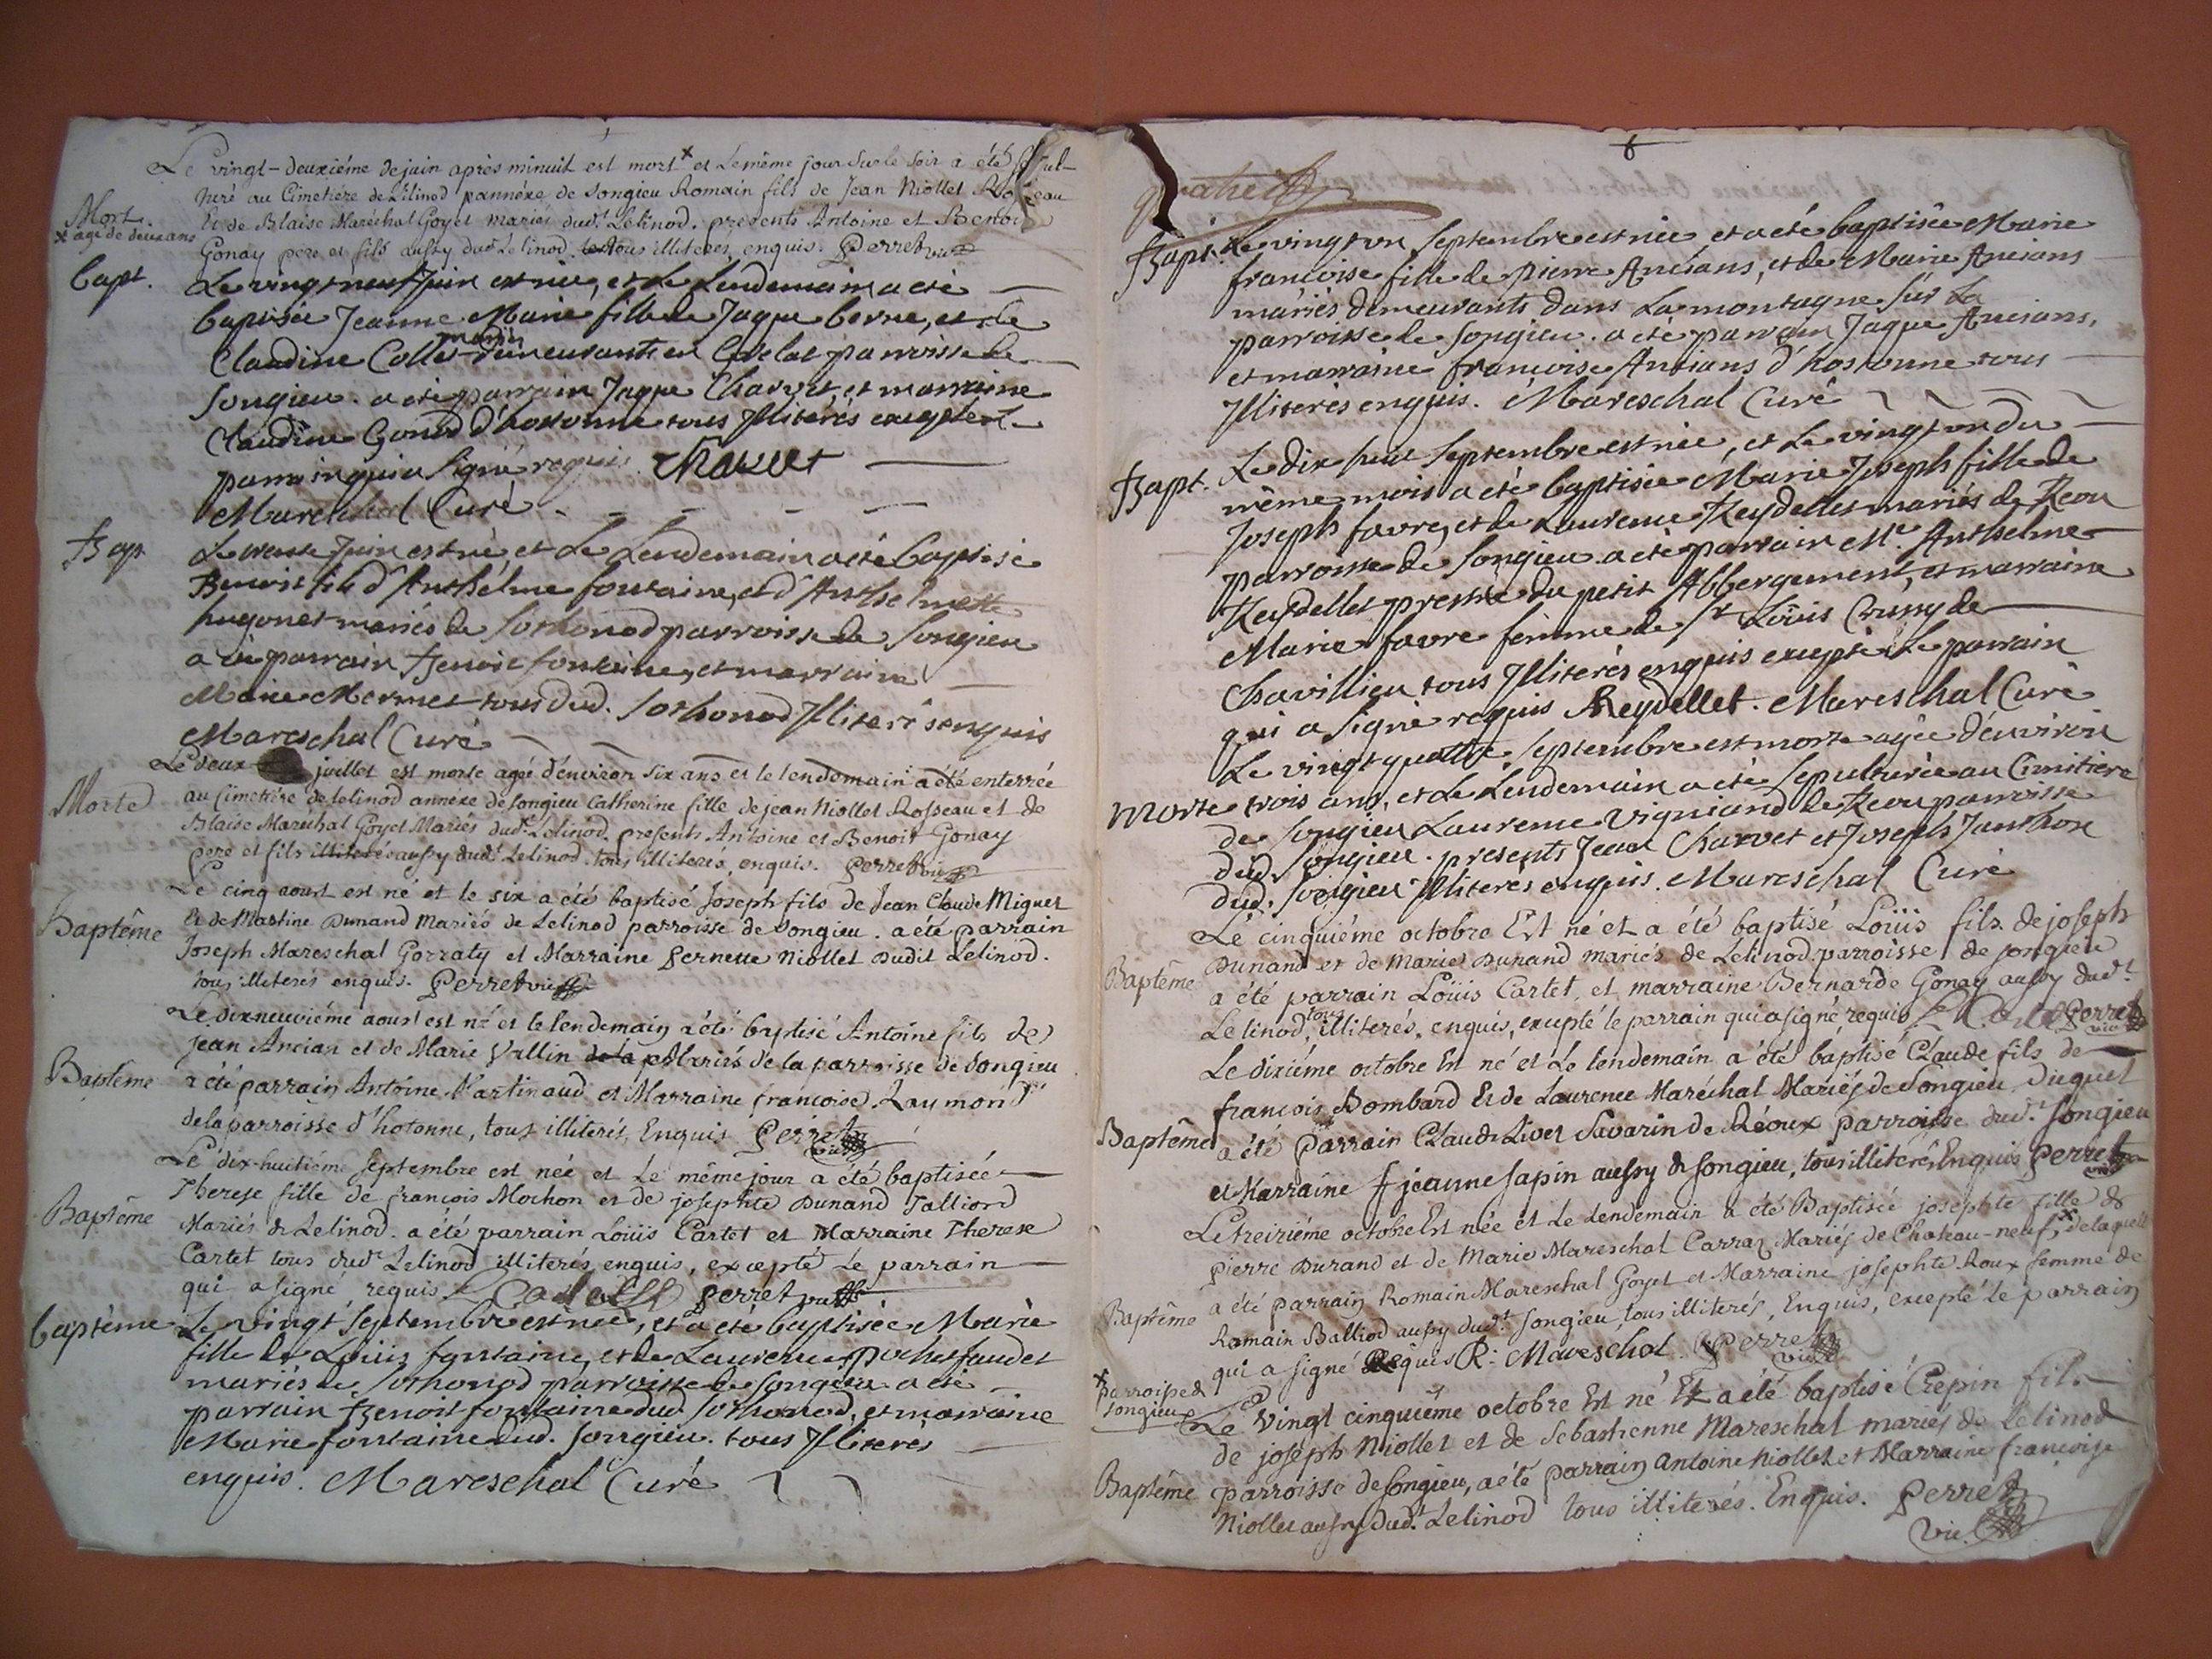 Le vingt-deuxiéme de juin après minuit est mort x et le même jour sur le soir à été sepul-
turé au Cimetiére de Lélinod pannéxe de Songieu Romain fils de Jean Niollet Rosseau
Mort. Et de Blaise Maréchal Goyet mariés dud.t Lélinod. presents Antoine et Benoit
x agé de deux ans
Gonay pere et fils aussy dud.t Lélinod. tous illiterés, enquis. Perret vic
bapt. Le vingt neuf Juin est née, et le Lendemain a eté
baptisée Jeanne Marie fille de Jaque berne, et de
Claudine Collet mariés demeurants en parroisse de
Songieu. a eté parrain Jaque Charvet, et marraine
Claudine Gonod d'hotonne tous Illiterés excepté le
parrain qui a signé requis. Charvet
Mareschal Curé
Bap. Le trente Juin est né et Le Lendemain a eté baptisé
Benoit fils d'Anthelme fontaine, et d'Anthelmette
hugonet mariés de Sothonod parroisse de Songieu
a eté parrain Benoit fontaine, et marraine
Marie Mermet tous dud. Sothonod Illiterés enquis
Mareschal Curé
Le deux juillet est morte agée d'environ six ans et le lendemain a été enterrée
Morte au Cimetiére de Lelinod annéxe de Songieu Catherine fille de jean Niollet Rosseau et de
Blaise Maréchal Goyet Mariés dud.t Lélinod. presents Antoine et Benoit Gonay
pere et fils illiterés aussy dud.t Lelinod. tous illiterés, enquis. Perret vic
Le cinq aoust est né et le six a été baptisé Joseph fils de Jean Claude Miguet
Baptême Et de Martine Dunand Mariés de Lelinod parroisse de Songieu. a été parrain
Joseph Mareschal Gorraty et Marraine Pernette Niollet Dudit Lelinod.
tous illiterés enquis. Perret vic
Le dixneuviéme aoust est né et le lendemain a été baptisé Antoine fils de
jean Ancian et de Marie Vallin de la p Mariés de la parroisse de Songieu
Baptême a été parrain Antoine Martinaud et Marraine françoise Raymond
de la parroisse d'hotonne, tous illiterés, Enquis Perret vic
Le dix-huitiéme Septembre est née et Le même jour a été baptisée
Therese fille de françois Mochon et de josephte Dunand Talliord
Baptême Mariés de Lelinod. a été parrain Loüis Cartet et Marraine Therese
Cartet tous dud.t Lelinod illiterés, enquis, excepté Le parrain
qui a signé, requis. Perret vic
baptême Le vingt Septembre est née, et a eté baptisée Marie
fille de Loüis fontaine, et de Laurence pochet faudet
mariés de Sothonod parroisse de Songieu. a eté
parrain Benoit fontaine dud. Sothonod, et marraine
Marie fontaine dud. Songieu. tous Illiterés
enquis. Mareschal Curé
6
Bapt. Le vingt un Septembre est née et a eté baptisée Marie
françoise fille de pierre Ancians, et de Marie Ancians
mariés demeurants dans La montagne sur La
parroisse de Songieu. a eté parrain Jaque Ancians,
et marraine françoise Ancians d'hostonne tous
Illiterés enquis. Mareschal Curé
Bapt. Le dix huit Septembre est née, et Le vingt un du
même mois a eté baptisée Marie Joseph fille de
Joseph favre, et de Laurence Reydellet mariés de Reou
parroisse de Songieu. a eté parrain M.e Anthelme
Reydellet prestre du petit Abbergement, et marraine
Marie favre femme de S.r Loüis Cuiny de
Chavillieu tous Illiterés enquis excepté Le parrain
qui a signé requis Reydellet. Mareschal Curé
Le vingt quattre Septembre est morte agée d'environ
Morte trois ans, et Le Lendemain a eté sepulturée au Cimitiére
de Songieu Laurence Vigniand de Reou parroisse
dud. Songieu. presents Jean Charvet et Joseph Janthon
dud. Songieu Illiterés enquis. Mareschal Curé
Le cinquiéme octobre Est né et a été baptisé Loüis fils de joseph
Dunand et de Marie Dunand mariés de Lelinod parroisse de songieu
Baptême a été parrain Loüis Cartet, et marraine Bernarde Gonay aussy dud.t
Lelinod, tous illiterés, enquis, excepté le parrain qui a signé, requis Perret vic
Le dixiéme octobre Est né et Le lendemain a été baptisé Claude fils de
françois Bombard Et de Laurence Maréchal Mariés de Songieu, duquel
Baptême a été Parrain Claude Livet Savarin de Réoux parroisse dud.t Songieu
et Marraine jeanne Sapin aussy de Songieu, tous illiterés, Enquis Perret vic
Le treiziéme octobre Est née et Le lendemain a été Baptisée josephte fille de
pierre Durand et de Marie Mareschal Carraz Mariés de Chateau-neuf x, de laquelle
Baptême a été parrain Romain Mareschal Goyet et Marraine josephte Roux femme de
Romain Balliod aussy dud.t Songieu, tous illiterés, Enquis, excepté Le parrain
qui a signé Requis R: Mareschal. Perret vic
x parroisse de Songieu
Le vingt cinquiéme octobre Est né Et a été baptisé Crepin fils
de joseph Niollet et de Sebastienne Mareschal mariés de Lelinod
Baptême parroisse de Songieu, a été parrain Antoine Niollet et Marraine françoise
Niollet aussy dud.t Lelinod tous illiterés. Enquis. Perret
vic.